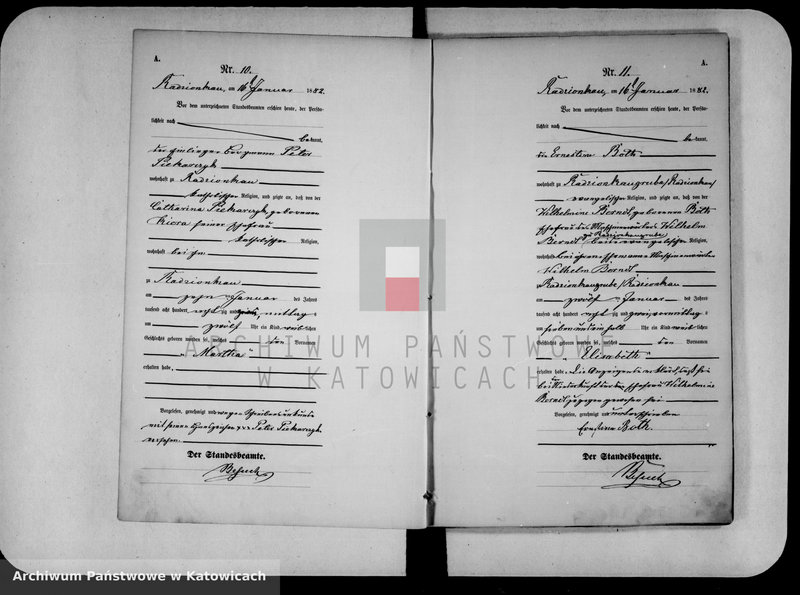 A.
Nr. 10.
Radzionkau, am 16 Januar 1882.
Vor dem unterzeichneten Standesbeamten erschien heute, der Persön-
lichkeit nach
be kannt,
der Peter
Piekarczyk
wohnhaft zu Radzionkau
katholischer Religion, und zeigte an, daß von der
Catharina Piekarczyk, geborenen
seiner Ehefrau
katholischer Religion,
wohnhaft bei ihm
zu Radzionkau
am zehn Januar des Jahres
tausend acht hundert acht zig und zwei, mittags
um zwölf Uhr ein Kind weiblichen
Geschlechts geboren worden sei, welches den Vornamen
„Martha“
erhalten habe.
Vorgelesen, genehmigt und wegen Schreibensunkunde
mit seinem Handzeichen Peter Piekarczyk
versehen.
Der Standesbeamte.
A.
Nr. 11.
Radzionkau, am 16 Januar 1882.
Vor dem unterzeichneten Standesbeamten erschien heute, der Persön-
lichkeit nach
be kannt,
die Ernestine Both
wohnhaft zu Radzionkaugrube/Radzionkau/
evangelischer Religion, und zeigte an, daß von der
Wilhelmine Berndt geborenen Both
Ehefrau des Maschinenwärters Wilhelm
zu Radzionkaugrube
Berndt evangelischer Religion,
wohnhaft bei ihrem Ehemanne Maschinenwärter
Wilhelm Berndt
Radzionkaugrube/Radzionkau
am zwölf Januar des Jahres
tausend acht hundert acht zig und zwei vormittags
um sieben Uhr ein Kind weiblichen
Geschlechts geboren worden sei, welches den Vornamen
„Elisabeth“
erhalten habe. Die Anzeigende erklärt, daß sie
bei Niederkunft der Ehefrau Wilhelmine
Berndt zugegen gewesen sei
Vorgelesen, genehmigt und unterschrieben
Ernestine Both.
Der Standesbeamte.
ARCHIWUM PAŃSTWOWE
W KATOWICACH
Archiwum Państwowe w Katowicach